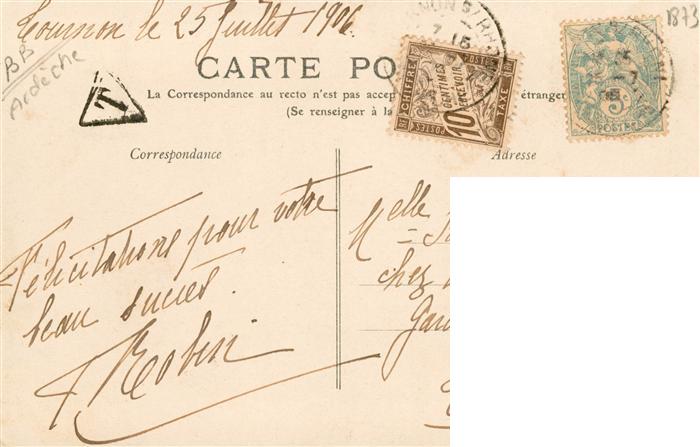 Tournon le 25 Juillet 1906
1873
BB
Ardèche
CARTE PO
La Correspondance au recto n'est pas accep
étranger
(Se renseigner à la
T
CHIFFRE
10
CENTIMES
À PERCEVOIR
TAXE
POSTES
5
POSTES
Correspondance
Adresse
Félicitations pour votre
beau succès.
Robin
Melle
chez